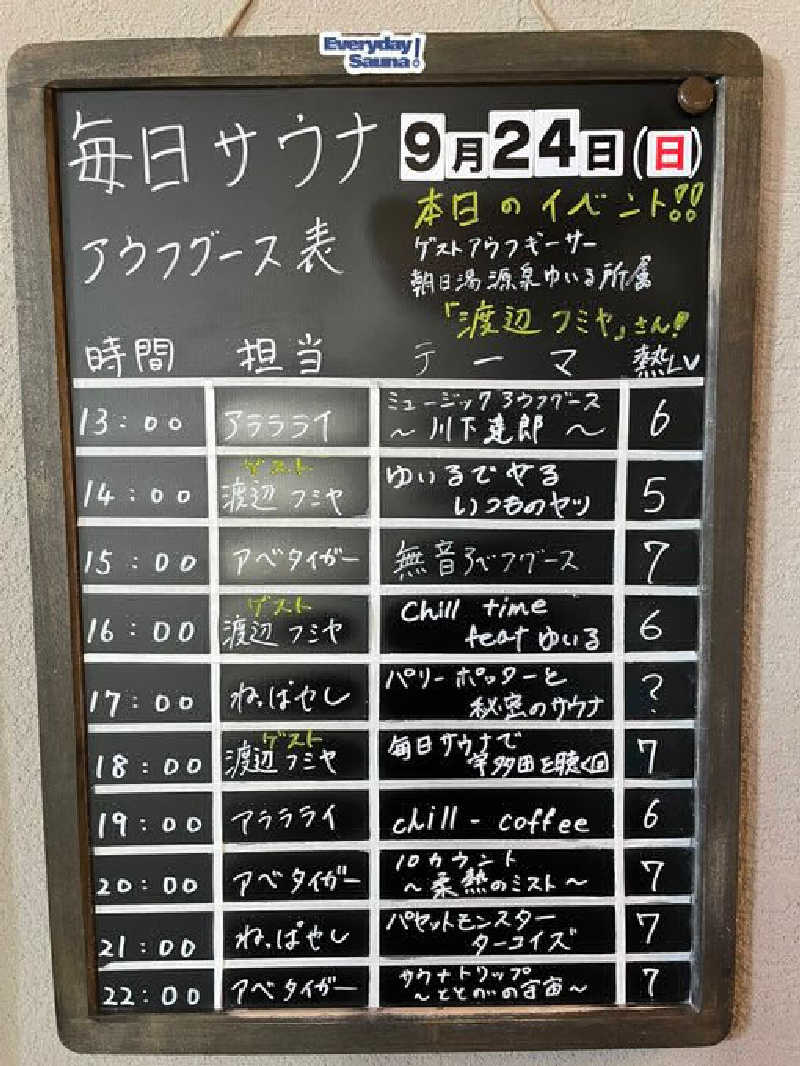 Everyday
Sauna!
毎日サウナ
9月24日(日)
アウフグース表
本日のイベント!!
ゲストアウフギーサー
朝日湯源泉ゆいる所属
「渡辺フミヤ」さん!
時間 担当 テーマ 熱LV
13:00 アララライ ミュージックアウフグース 6
～川下達郎～
14:00 ゲスト 渡辺フミヤ ゆいるでやる 5
いつものヤツ
15:00 アベタイガー 無音アベフグース 7
16:00 ゲスト 渡辺フミヤ chill time 6
feat ゆいる
17:00 ねっぱやし パリーポッターと ?
秘密のサウナ
18:00 ゲスト 渡辺フミヤ 毎日サウナで 7
宇多田を聴く回
19:00 アララライ chill - coffee 6
20:00 アベタイガー 10カウント 7
～柔熱のミスト～
21:00 ねっぱやし パセットモンスター 7
ターコイズ
22:00 アベタイガー サウナトリップ 7
～ととのいの宇宙～